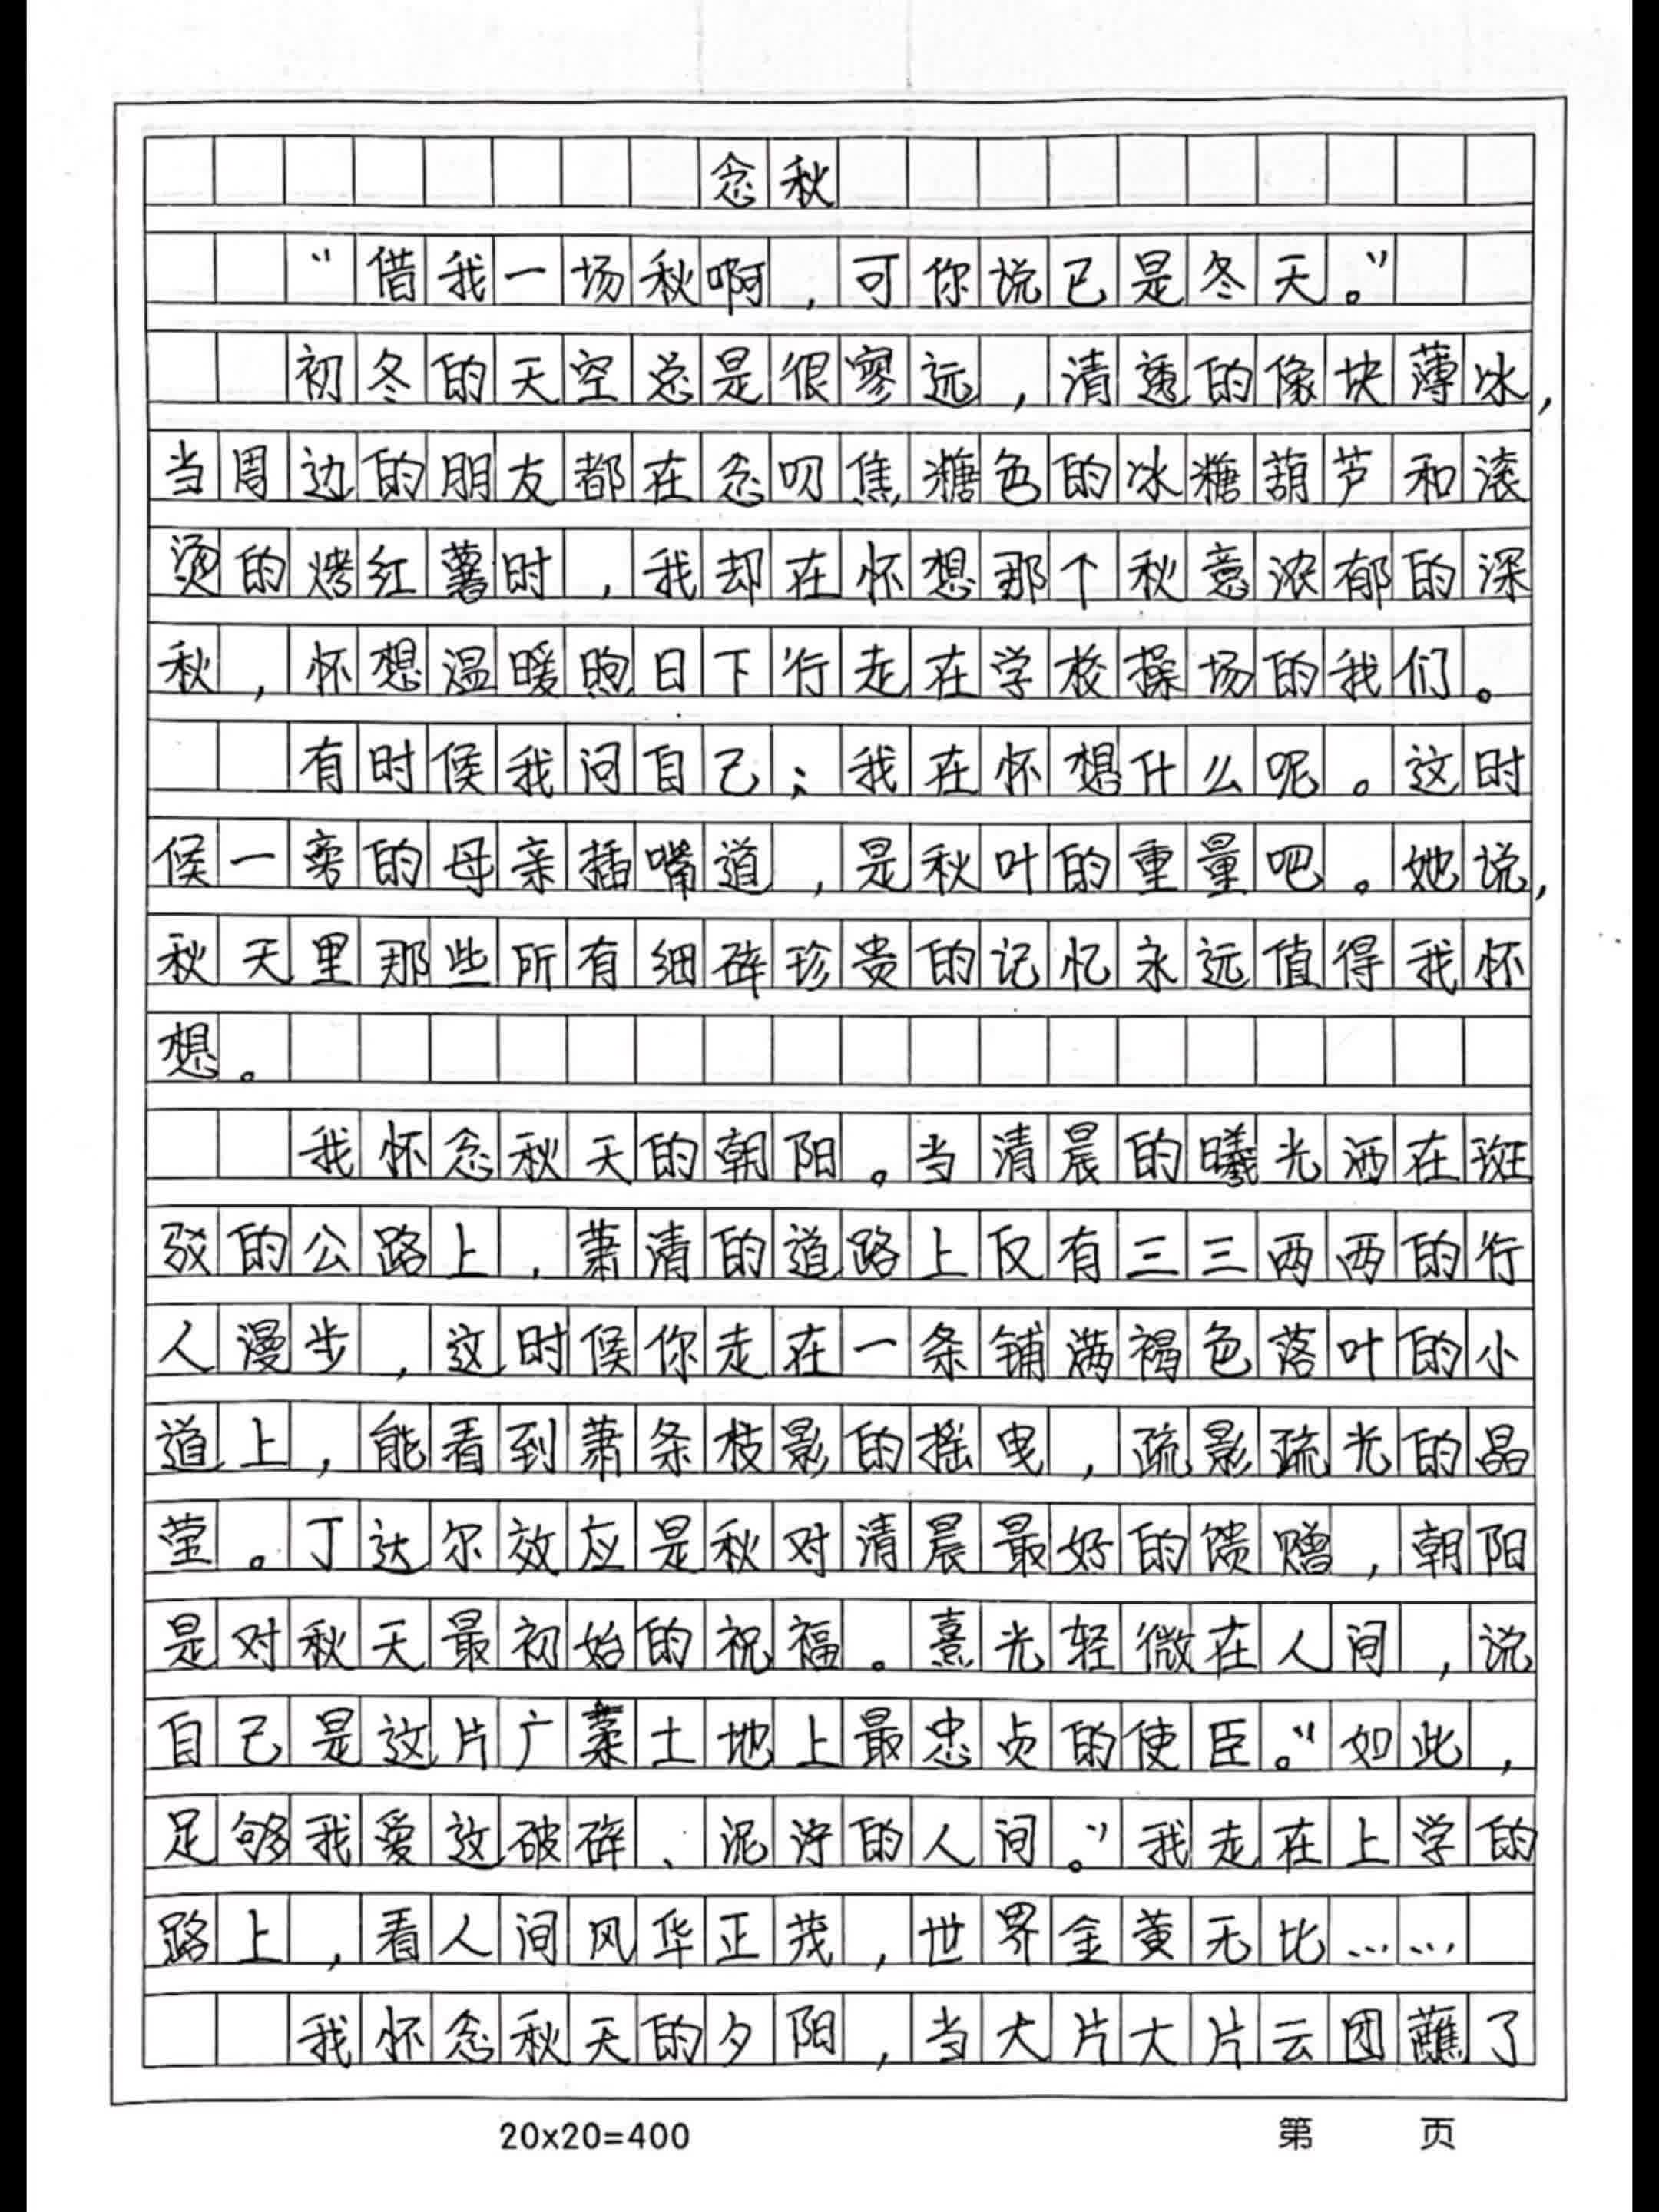 念秋
“借我一场秋啊，可你说已是冬天。”
初冬的天空总是很寥远，清透的像块薄冰，
当周边的朋友都在念叨焦糖色的冰糖葫芦和滚
烫的烤红薯时，我却在怀想那个秋意浓郁的深
秋，怀想温暖煦日下行走在学校操场的我们。
有时候我问自己；我在怀想什么呢。这时
候一旁的母亲插嘴道，是秋叶的重量吧。她说，
秋天里那些所有细碎珍贵的记忆永远值得我怀
想。
我怀念秋天的朝阳。当清晨的曦光洒在斑
驳的公路上，萧清的道路上仅有三三两两的行
人漫步，这时候你走在一条铺满褐色落叶的小
道上，能看到萧条枝影的摇曳，疏影疏光的晶
莹。丁达尔效应是秋对清晨最好的馈赠，朝阳
是对秋天最初始的祝福。熹光轻微在人间，说
自己是这片广葇土地上最忠贞的使臣。”如此，
足够我爱这破碎、泥泞的人间。”我走在上学的
路上，看人间风华正茂，世界金黄无比……
我怀念秋天的夕阳，当大片大片云团蘸了
20×20=400
第 页